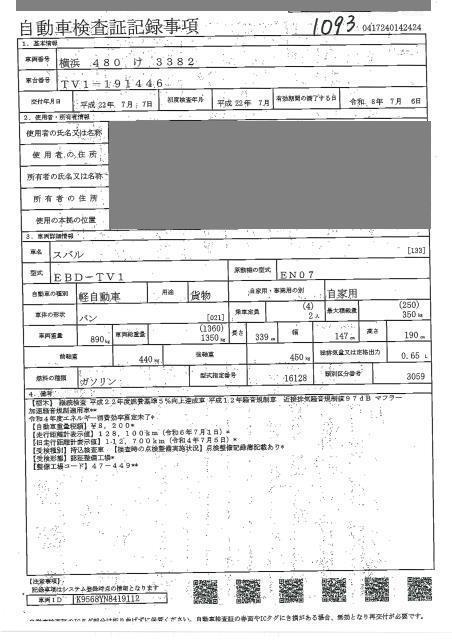 自動車検査証記録事項 1093 0417240142424
1. 基本情報
車両番号 横浜 480 け 3382
車台番号 TV1-191446
交付年月日 平成 22年 7月 7日 初度検査年月 平成 22年 7月 有効期間の満了する日 令和 8年 7月 6日
2. 使用者・所有者情報
使用者の氏名又は名称
使用者の住所
所有者の氏名又は名称
所有者の住所
使用の本拠の位置
3. 車両詳細情報
車名 スバル [133]
型式 EBD-TV1 原動機の型式 EN07
自動車の種別 軽自動車 用途 貨物 自家用・事業用の別 自家用
車体の形状 バン [021] 乗車定員 (4) 2人 最大積載量 (250) 350kg
車両重量 890kg 車両総重量 (1360) 1350kg 長さ 339cm 幅 147cm 高さ 190cm
前軸重 440kg 後軸重 450kg 総排気量又は定格出力 0.65 L
燃料の種類 ガソリン 型式指定番号 16128 類別区分番号 3059
4. 備考
継続検査 平成22年度燃費基準5%向上達成車 平成12年騒音規制車 近接排気騒音規制値97dB マフラー
加速騒音規制適用車**
令和4年度エネルギー消費効率
【自動車重量税額】¥8,200*
【走行距離計表示値】128,100km(令和6年7月1日)*
【旧走行距離計表示値】112,700km(令和4年7月5日)*
【受検種別】持込検査車 【検査時の点検整備実施状況】点検整備記録簿記載あり*
【受検形態】認証整備工場*
【整備工場コード】47-449**
【注意事項】
記録事項はシステム登録時点の情報となります
車両ID K9568YN8419112
自動車検査証の券面やICタグにき損がある場合、無効となり再交付が必要です。